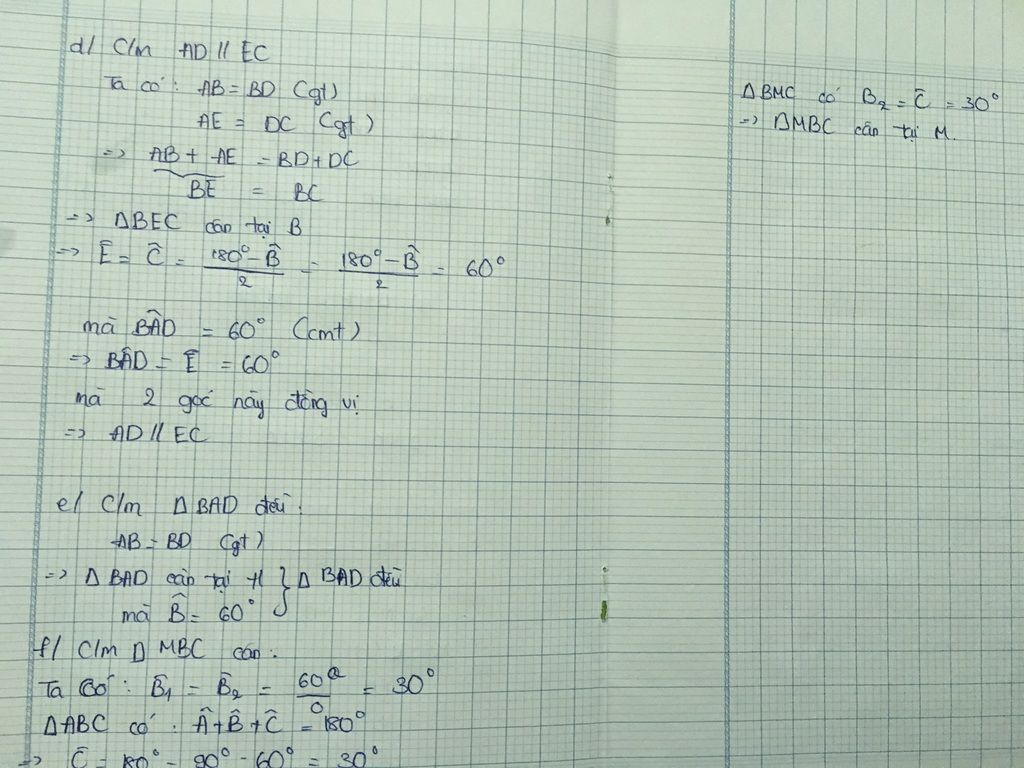 d/ C/m AD // EC
Ta có: AB = BD (gt)
AE = DC (gt)
=> AB + AE = BD + DC
BE = BC
=> ΔBEC cân tại B
=> Ê = Ĉ = (180° - B̂)/2 = (180° - B̂)/2 = 60°
mà BÂD = 60° (cmt)
=> BÂD = Ê = 60°
mà 2 góc này đồng vị
=> AD // EC
e/ C/m Δ BAD đều.
AB = BD (gt)
=> Δ BAD cân tại } Δ BAD đều
mà B̂ = 60°
f/ C/m Δ MBC cân.
Ta có: B̂₁ = B̂₂ = 60°/ = 30°
ΔABC có: Â + B̂ + Ĉ = 180°
=> Ĉ = 180° - 90° - 60° = 30°
ΔBMC có B̂₂ = Ĉ = 30°
=> ΔMBC cân tại M.